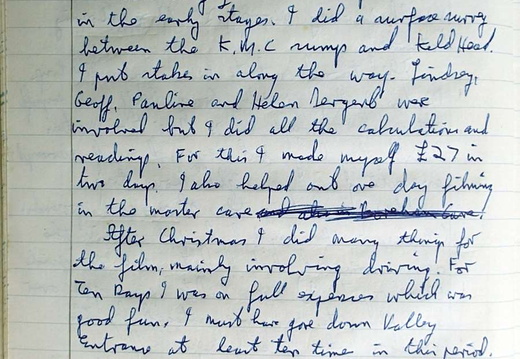 in the early stages. I did a surface survey
between the K.M.C sump and Keld Head.
I put stakes in along the way. Lindsey,
Geoff, Pauline and Helen Sergent were
involved but I did all the calculations and
readings. For this I made myself £27 in
two days. I also helped out one day filming
in the master cave and also in
After Christmas I did many things for
the film, mainly involving driving. For
Ten Days I was on full expenses which was
good fun. I must have gone down Valley
Entrance at least ten time in this period.